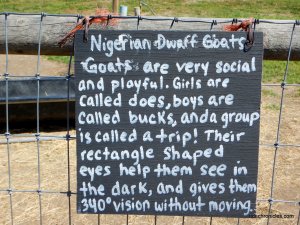 Nigerian Dwarf Goats
Goats are very social
and playful. Girls are
called does, boys are
called bucks, and a group
is called a trip! Their
rectangle shaped
eyes help them see in
the dark, and gives them
340° vision without moving.